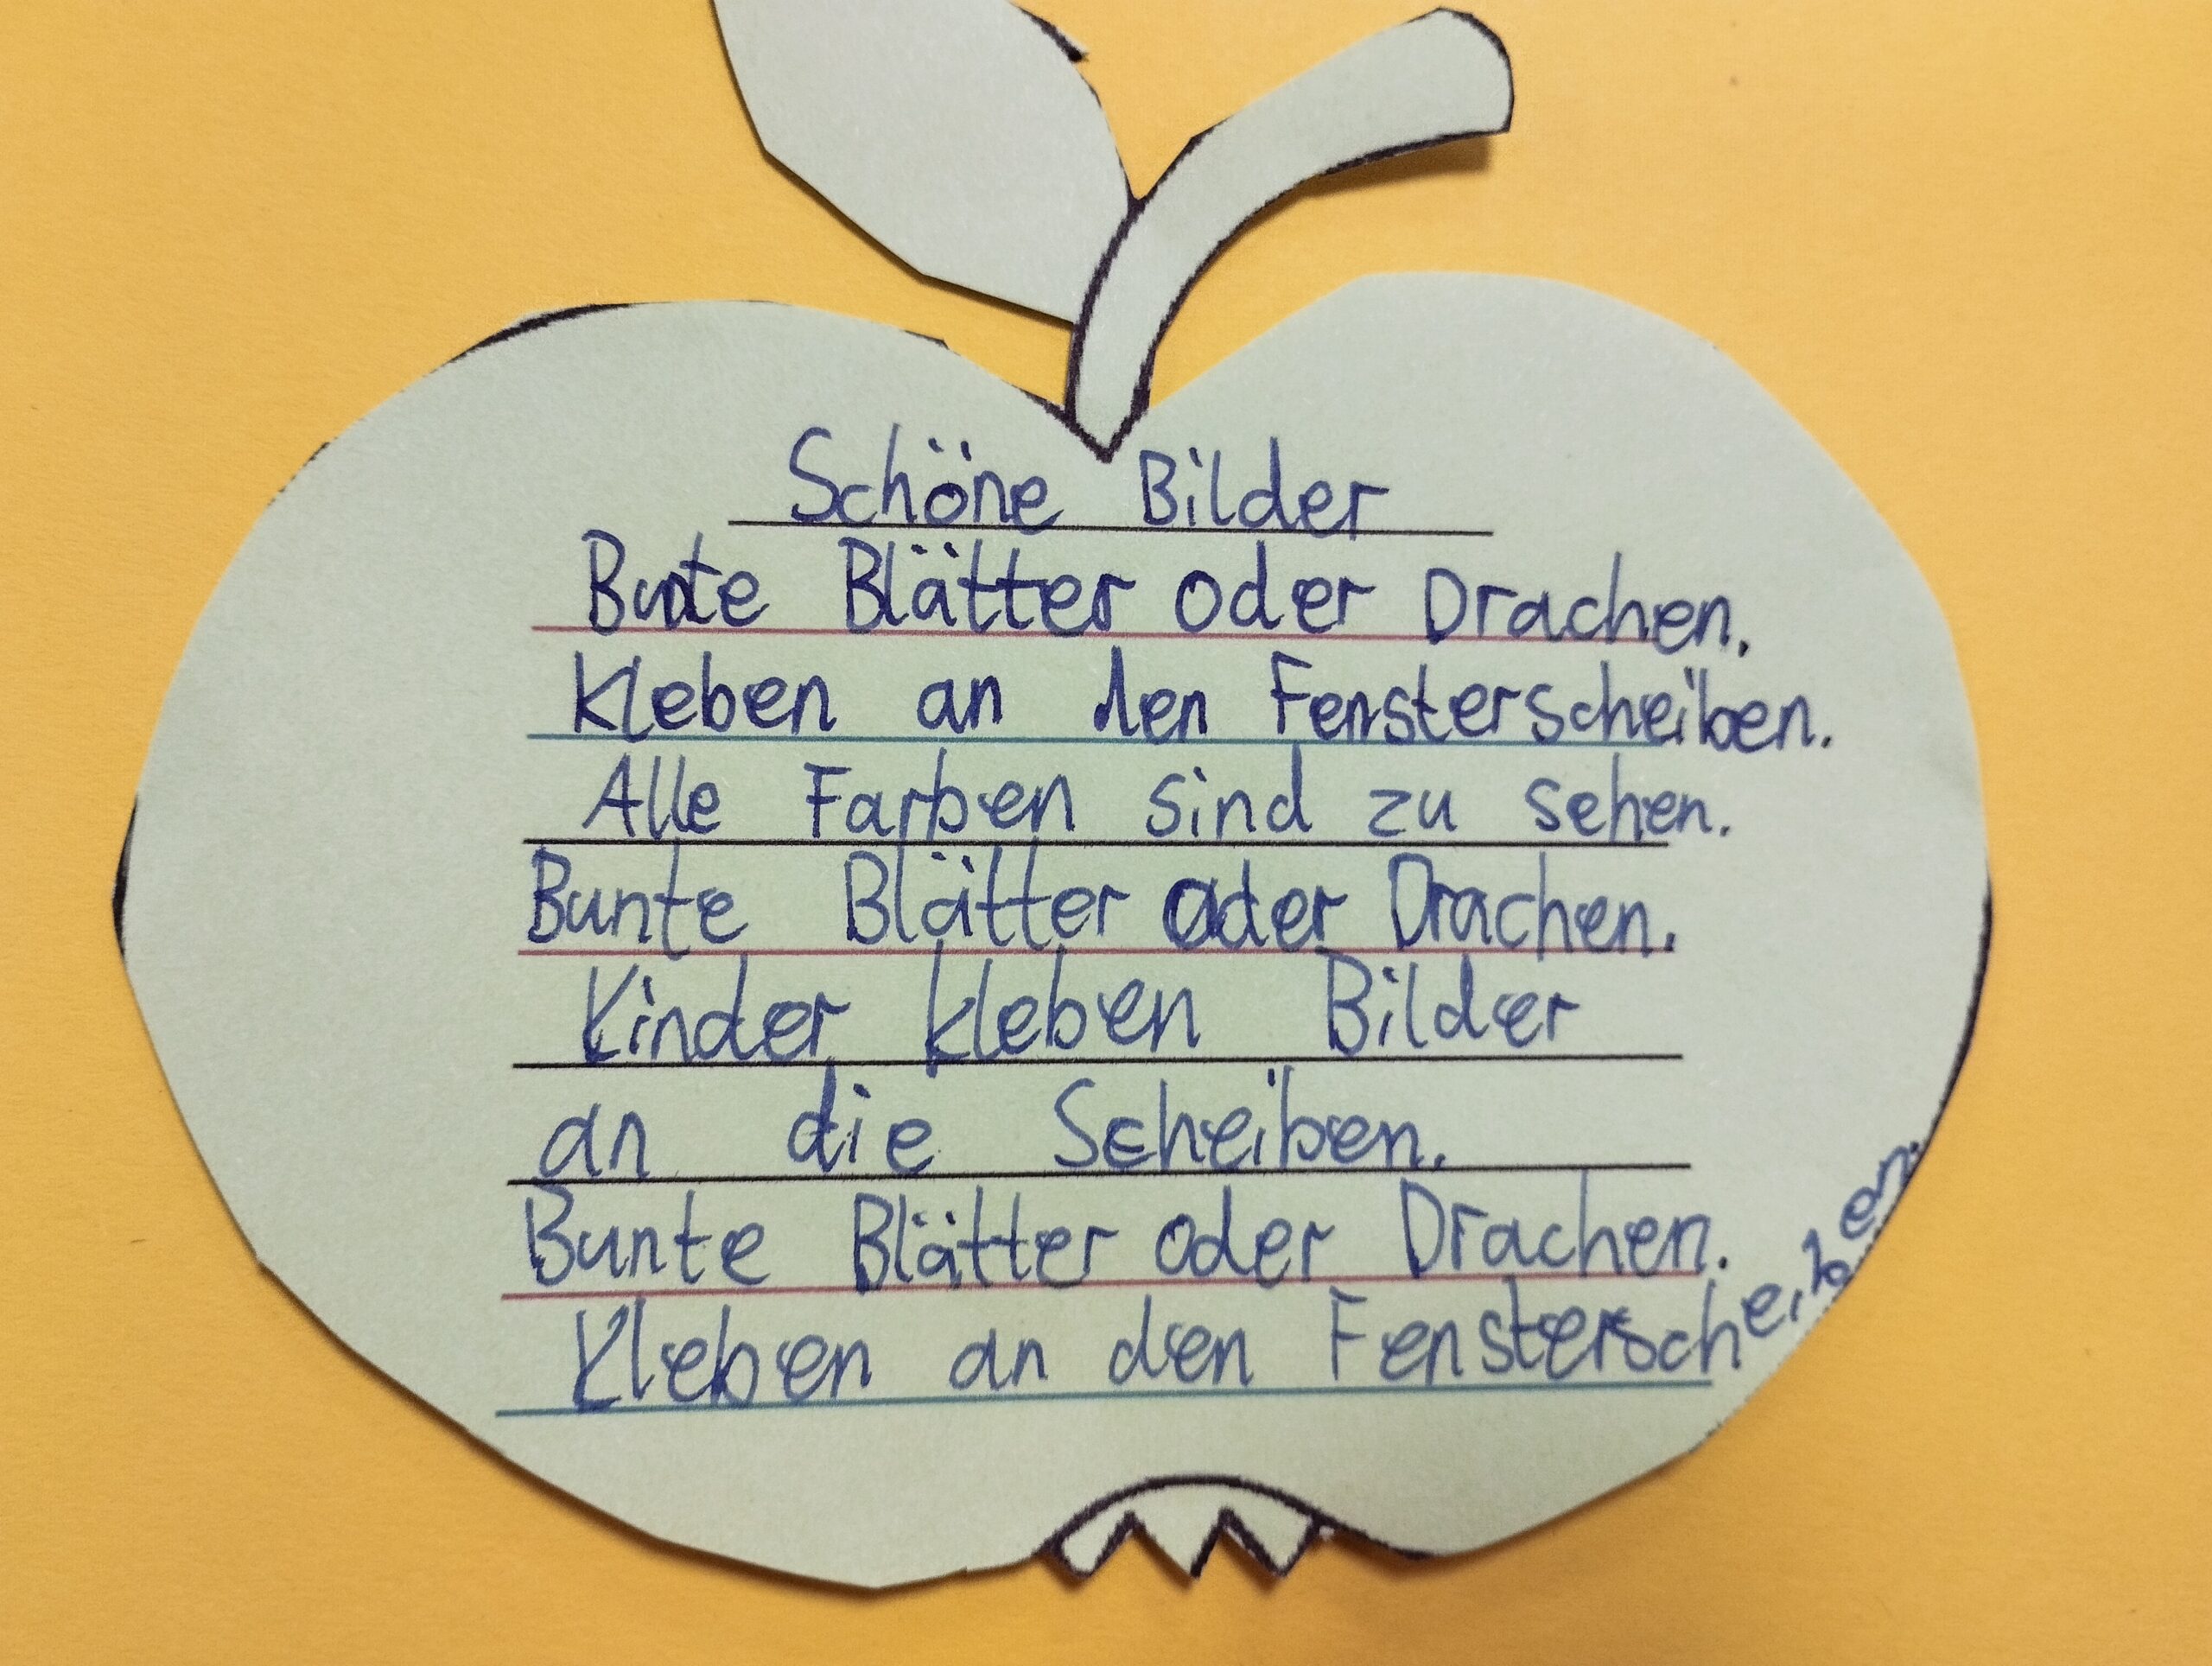 Schöne Bilder
Bunte Blätter oder Drachen.
Kleben an den Fensterscheiben.
Alle Farben sind zu sehen.
Bunte Blätter oder Drachen.
Kinder kleben Bilder
an die Scheiben.
Bunte Blätter oder Drachen.
Kleben an den Fensterscheiben.